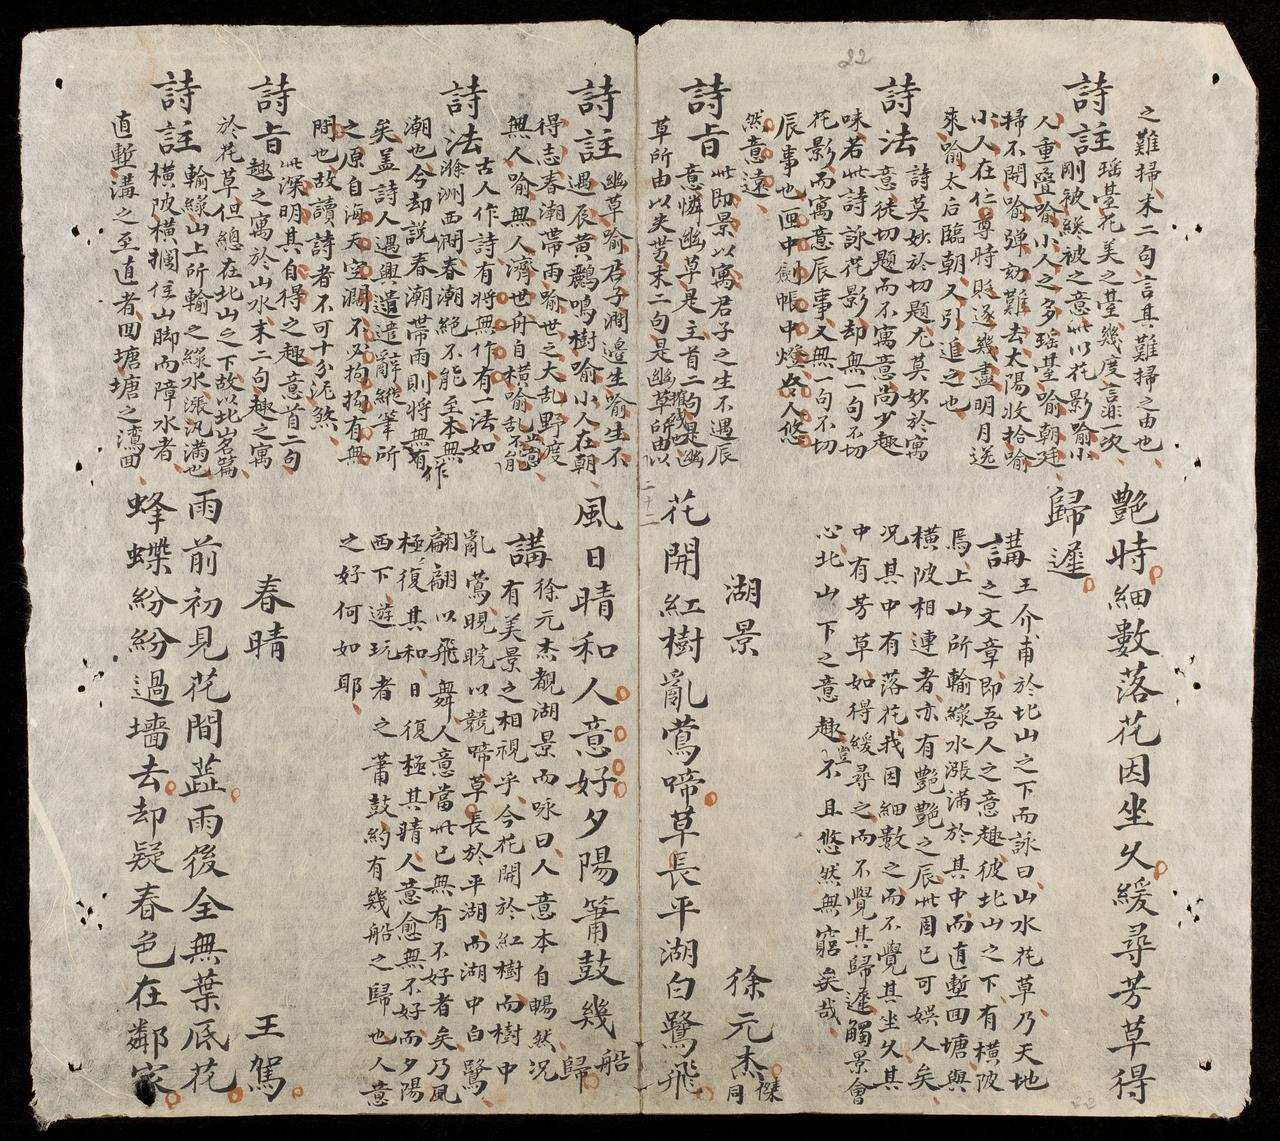 之難掃末二句言其難掃之由也
詩註瑶䑓花美之䑓幾度言非一次
剛被纔被之意此以花影喻小
人重疊喻小人之多瑶䑓喻朝廷
掃不開喻弹劾難去太陽收拾喻
小人在仁尊時貶逐幾盡明月送
來喻太后臨朝又引進之也
詩法詩莫妙於切題尤莫妙於寓
意徒切題而不寓意尚少趣
味若此詩詠花影却無一句不切
花影而寓意辰事又無一句不切
辰事也匣中劍帳中燈令人悠
然意遠
詩旨此即景以寓君子之生不遇辰
意憐幽草是主首二句是幽
草所由以失芳末二句是幽草所由以
詩註幽草喻君子澗邊生喻生不
遇辰黃鸝鳴樹喻小人在朝
得志春潮帶雨喻世之大乱野渡
無人喻無人濟世舟自横喻乱不能
詩法古人作詩有將無作有一法如
滁洲西澗春潮絕不能至本無
潮也今却說春潮帶雨則將無作有
矣盖詩人遇興遣辭縱筆所
之原自海天空濶不必拘拘有無
間也故讀詩者不可十分泥煞
詩旨此深明其自得之趣意首二句
趣之寓於山水末二句趣之寓
於花草但總在北山之下故以北山名篇
詩註輸綠山上所輸之綠水漲汎滿也
横陂横攔住山脚而障水者
直塹溝之至直者囬塘塘之灣囬
艷時細數落花因坐久緩尋芳草得
歸遲
講王介甫於北山之下而詠曰山水花草乃天地
之文章即吾人之意趣彼北山之下有横陂
焉上山所輸綠水漲滿於其中而直塹囬塘與
横陂相連者亦有艷艷之辰此固已可娱人矣
况其中有落花我因細數之而不覺其坐久其
中有芳草如得緩尋之而不覺其歸遲觸景會
心北山下之意趣豈不且悠然無窮矣哉
湖景 徐元杰傑同
花開紅樹亂鶯啼草長平湖白鷺飛
風日晴和人意好夕陽簫鼓幾船歸
講徐元杰覩湖景而咏曰人意本自暢然况
有美景之相視乎今花開於紅樹而樹中
亂鶯睍睆以競啼草長於平湖而湖中白鷺
翩翩以飛舞人意當此已無有不好者矣乃風
極復其和日復極其晴人意愈無不好而夕陽
西下遊玩者之蕭鼓約有幾船之歸也人意
之好何如耶
春晴 王駕
雨前初見花間蕋雨後全無葉底花
蜂蠑紛紛過墻去却疑春色在鄰家